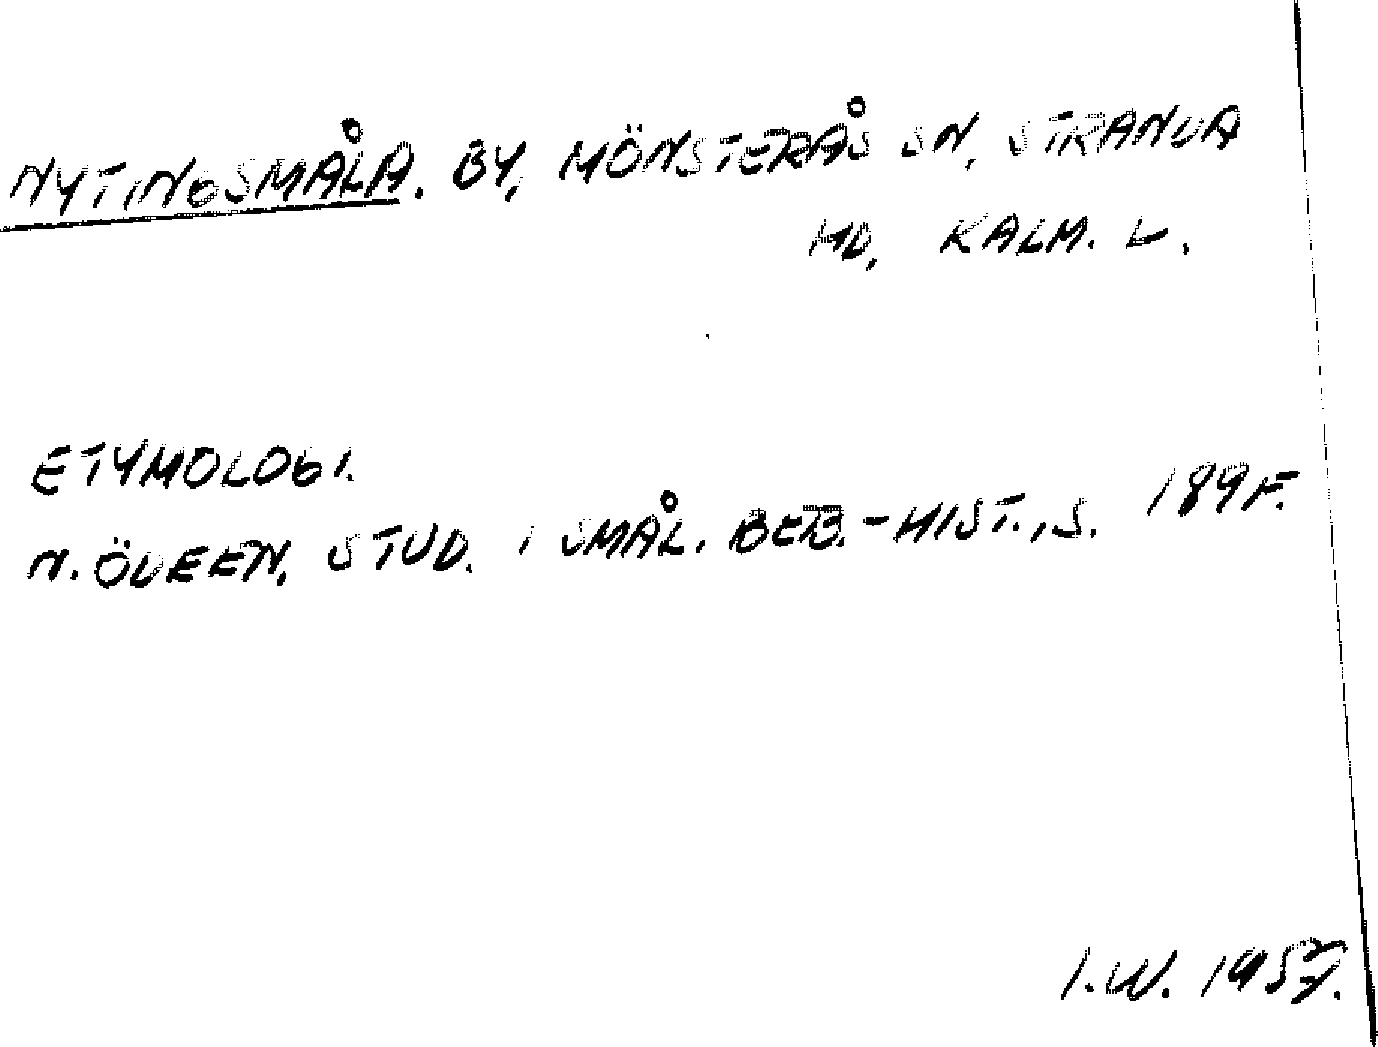 NYTINGSMÅLA. BY, MÖNSTERÅS SN, STRANDA
HD, KALM. L.
ETYMOLOGI.
N. ÖDEEN, STUD. I SMÅL. BEB.-HIST., S. 189 F.
I.W. 1957.